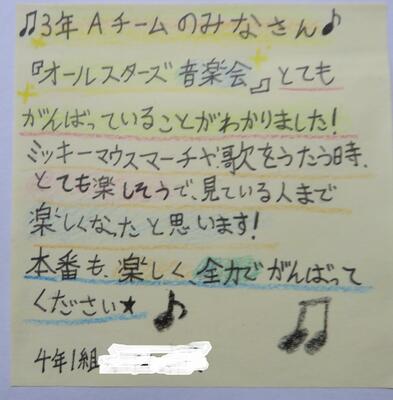 ♫3年Aチームのみなさん♪
『オールスターズ音楽会』とても
がんばっていることがわかりました!
ミッキーマウスマーチや歌をうたう時、
とても楽しそうで、見ている人まで
楽しくなったと思います!
本番も、楽しく、全力でがんばって
ください★♪ ♫
4年1組